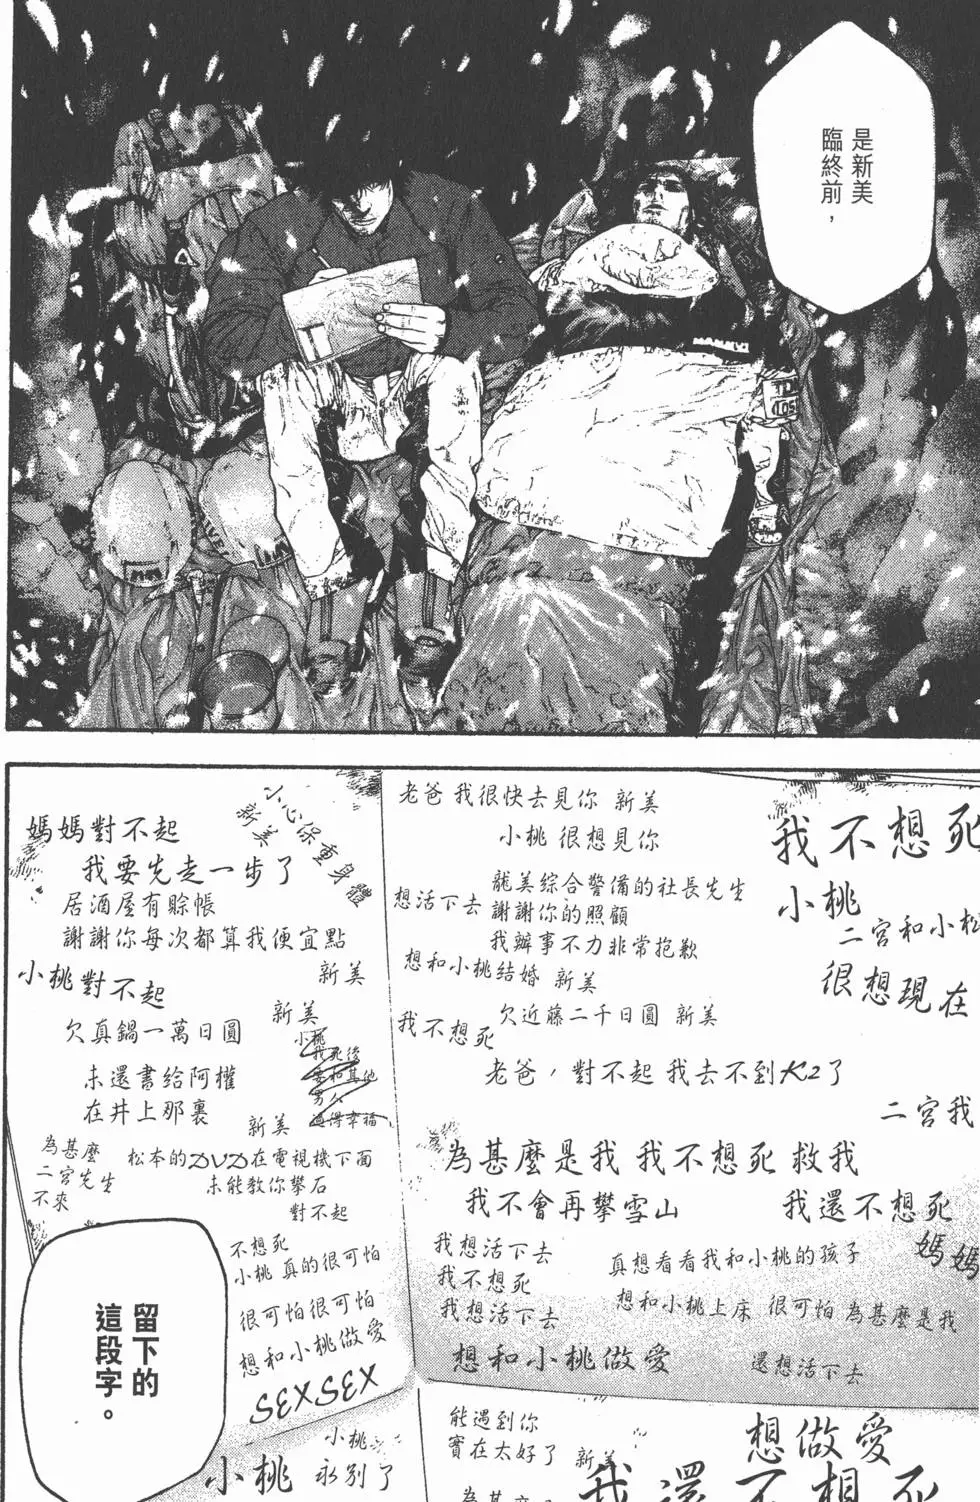 是新美
臨終前，
MAMMUT
媽媽對不起
我要先走一步了
小心保重身體
新美
居酒屋有賒帳
謝謝你每次都算我便宜點
新美
小桃對不起
新美
欠真鍋一萬日圓
小桃
我死後
要和其他
男人
過得幸福
未還書給阿權
在井上那裏
新美
為甚麼
二宮先生
不來
松本的DVD在電視機下面
未能教你攀石
對不起
不想死
小桃 真的很可怕
很可怕很可怕
想和小桃做愛
SEXSEX
小桃
小桃 永別了
老爸 我很快去見你 新美
小桃 很想見你
想活下去
龍美綜合警備的社長先生
謝謝你的照顧
我辦事不力非常抱歉
想和小桃結婚 新美
我不想死
欠近藤二千日圓 新美
老爸，對不起 我去不到K2了
為甚麼是我 我不想死 救我
我不會再攀雪山
我還不想死
我想活下去
我不想死
我想活下去
真想看看我和小桃的孩子
想和小桃上床 很可怕 為甚麼是我
想和小桃做愛
還想活下去
我不想死
小桃
二宮和小松
很想現在
二宮我
媽媽
能遇到你
實在太好了
新美
為甚麼
想做愛
我還不想死
留下的
這段字。